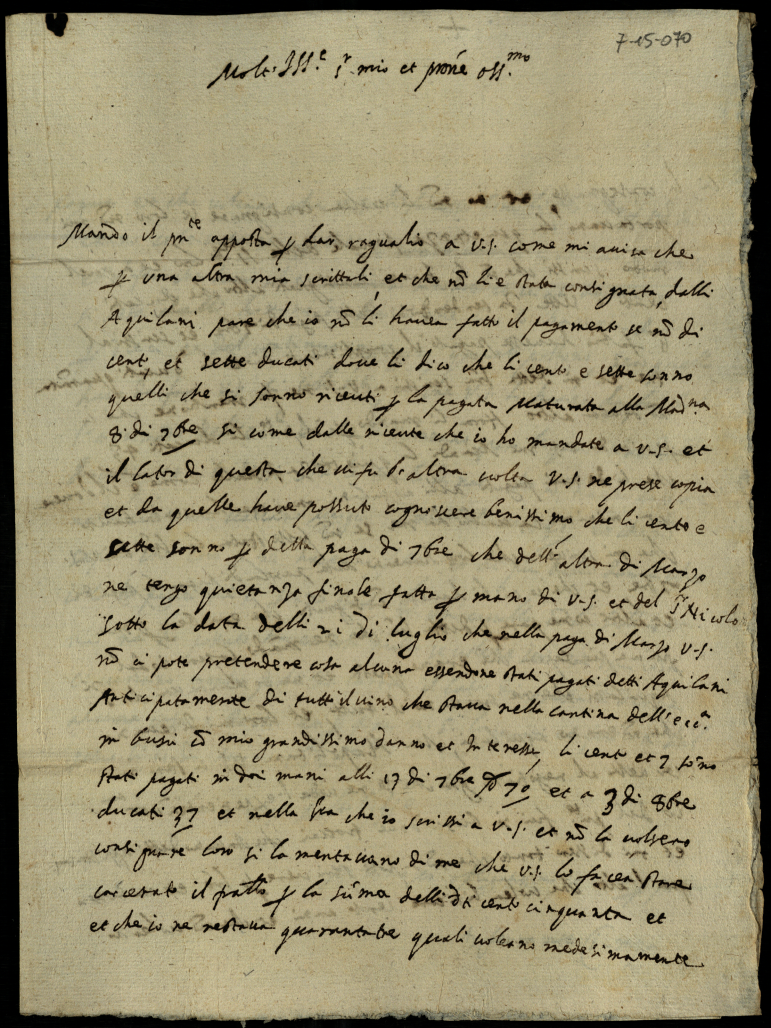 7-15-070
Molt. Ill.e s.r mio et prone oss.mo
Mando il pnte apposta p dar, raguaglio a V.S. come mi auisa che
p una altra mia scrittali et che nō li e stata consignata dalli
Aquilani pare che io nō li hauea fatto il pagamento se nō di
cento et sette ducati doue li dico che li cento e sette sonno
quelli che si sonno riceuti p la pagata maturata alla
8 di 7bre si come dalle riceute che io ho mandate a V.S. et
il lator di questa che altra uolta V.S. ne prese copia
et da quelle haue possuto cognoscere benissimo che li cento e
sette sonno p detta paga di 7bre che dell'altra di Marzo
ne tengo quietanza finale fatta p mano di V.S. et del Sr Nicolo
sotto la data delli 21 di luglio che nella paga di Marzo V.S.
nō ci pote pretendere cosa alcuna essendone stati pagati detti Aquilani
Anticipatamente di tutto il uino che staua nella cantina dell'
in cō mio grandissimo danno et Interesse, li cento et 7 sōno
stati pagati in doi mani alli 17 di 7bre 70 et a 3 di 8bre
ducati 37 et nella che io scrissi a V.S. et nō la uolsero
consignare loro si lamentauano di me che V.S. lo facea stare
carcerato il p la sūma delli dti cento cinquanta et
et che io ne restaua quarantatre quali uoleano medesimamente